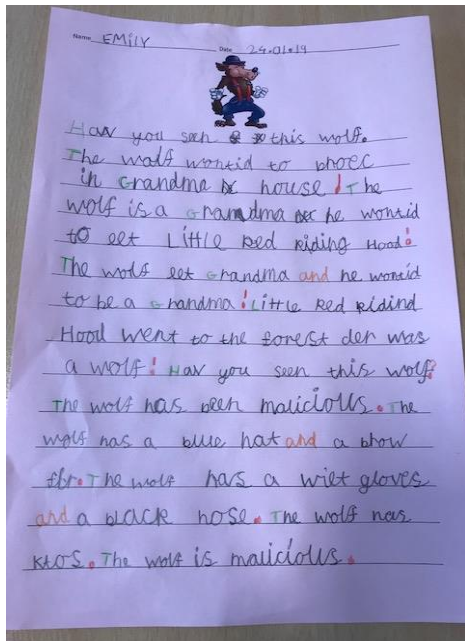 Name EMILY Date 24.01.19
Hav you seen this wolf.
The wolf wontid to broec
in Grandma house! The
wolf is a Grandma he wontid
to eet Little Red Riding Hood!
The wolf eet Grandma and he wontid
to be a Grandma! Little Red Ridind
Hood went to the forest der was
a wolf! Hav you seen this wolf?
The wolf has been malicious. The
wolf has a blue hat and a brow
fbr. The wolf has a wiet gloves
and a black nose. The wolf has
klos. The wolf is malicious.